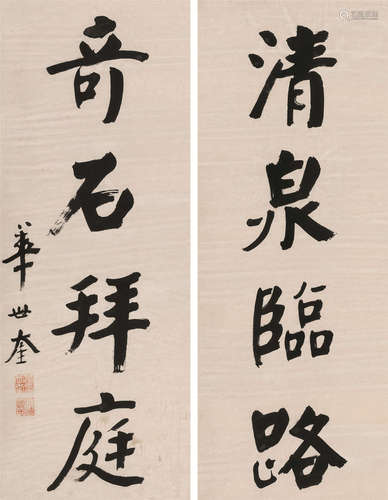 清泉臨路
奇石拜庭
華世奎